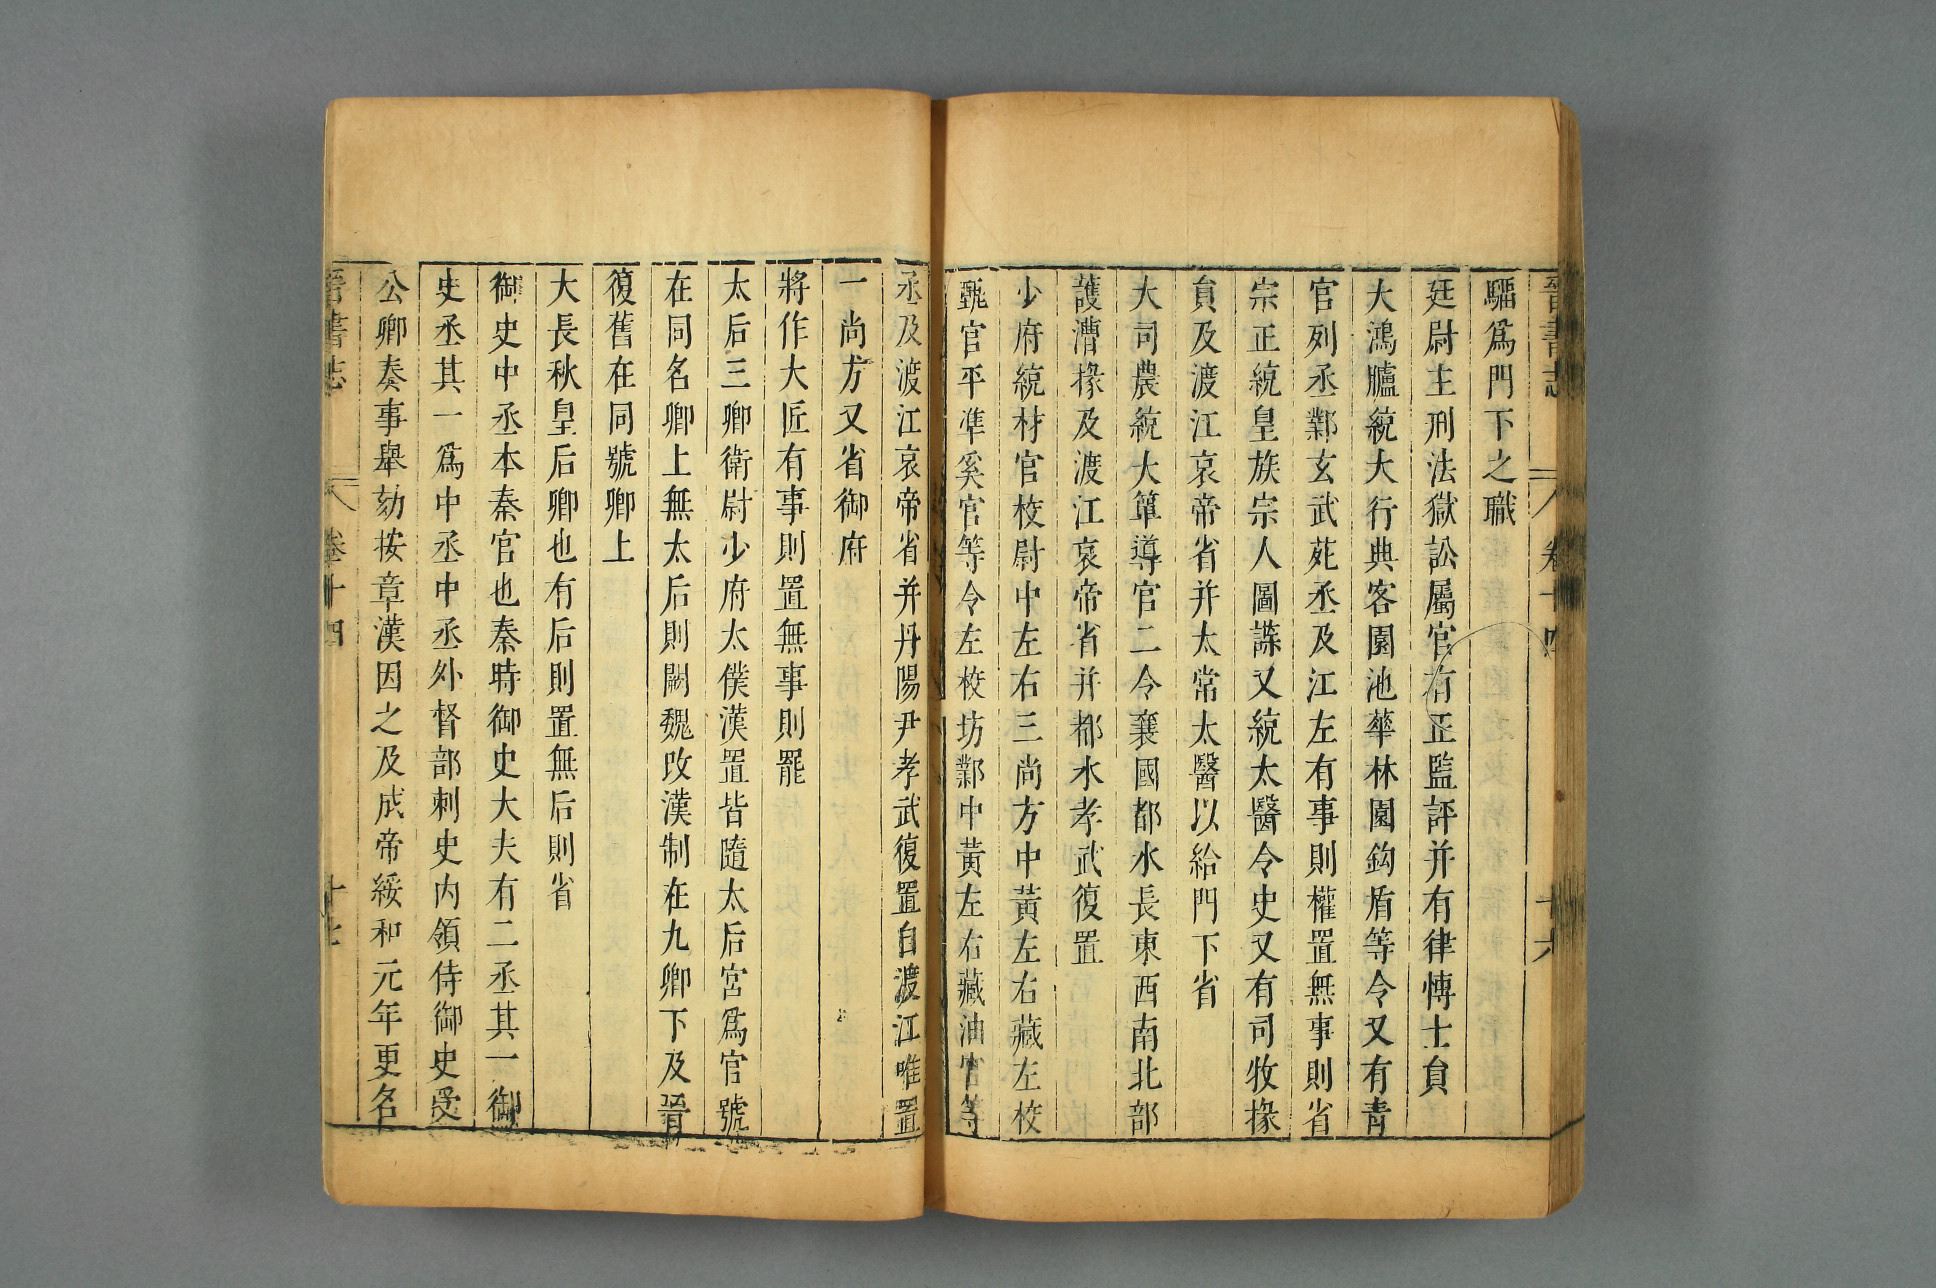 晉書志 卷十四 十六
騮爲門下之職
廷尉主刑法獄訟屬官有正監評并有律博士員
大鴻臚統大行典客園池華林園鈎盾等令又有青
官列丞鄴玄武苑丞及江左有事則權置無事則省
宗正統皇族宗人圖諜又統太醫令史又有司牧掾
員及渡江哀帝省并太常太醫以給門下省
大司農統大𥫣導官二令襄國都水長東西南北部
護漕掾及渡江哀帝省并都水孝武復置
少府統材官校尉中左右三尚方中黃左右藏左校
甄官平準奚官等令左校坊鄴中黃左右藏油官等
丞及渡江哀帝省并丹陽尹孝武復置自渡江唯置
一尚方又省御府
將作大匠有事則置無事則罷
太后三卿衛尉少府太僕漢置皆隨太后宮爲官號
在同名卿上無太后則闕魏改漢制在九卿下及晉
復舊在同號卿上
大長秋皇后卿也有后則置無后則省
御史中丞本秦官也秦時御史大夫有二丞其一御
史丞其一爲中丞中丞外督部刺史内領侍御史受
公卿奏事舉劾按章漢因之及成帝綏和元年更名
晉書志 卷十四 十七